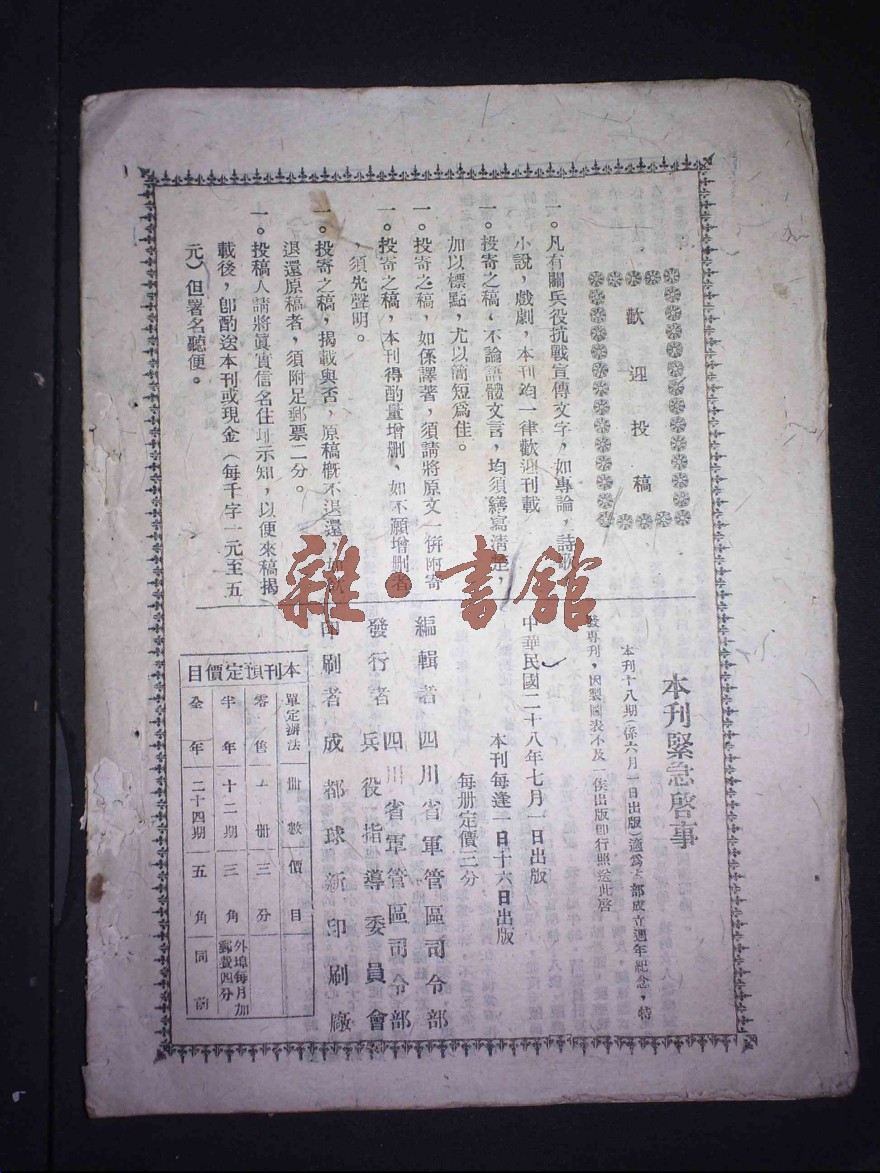 歡迎投稿
一。凡有關兵役抗戰宣傳文字，如專論，詩歌
小說，戲劇，本刊均一律歡迎刊載
一。投寄之稿，不論語體文言，均須繕寫清楚，
加以標點，尤以簡短爲佳。
一。投寄之稿，如係譯著，須請將原文一併附寄
一。投寄之稿，本刊得酌量增刪，如不願增刪者
，須先聲明。
一。投寄之稿，揭載與否，原稿槪不退還，如欲
退還原稿者，須附足郵票二分。
一。投稿人請將眞實信名住址示知，以便來稿揭
載後，卽酌送本刊或現金（每千字一元至五
元）但署名聽便。
本刊緊急啓事
本刊十八期（係六月一日出版）適爲本部成立週年紀念，特
發專刊，因製圖表不及，俟出版卽行照送此啓
中華民國二十八年七月一日出版
本刊每逢一日十六日出版
每册定價二分
編輯者 四川省軍管區司令部
發行者 四川省軍管區司令部
兵役指導委員會
印刷者 成都球新印刷廠
本刊預定價目
單定辦法 册數 價目
零售 一册 三分
半年 十二期 三角 外埠每月加
郵費四分
全年 二十四期 五角 同前
雜·書館